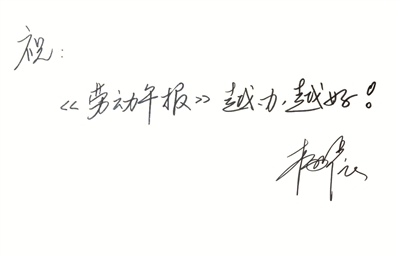 祝:
《劳动午报》越办越好!